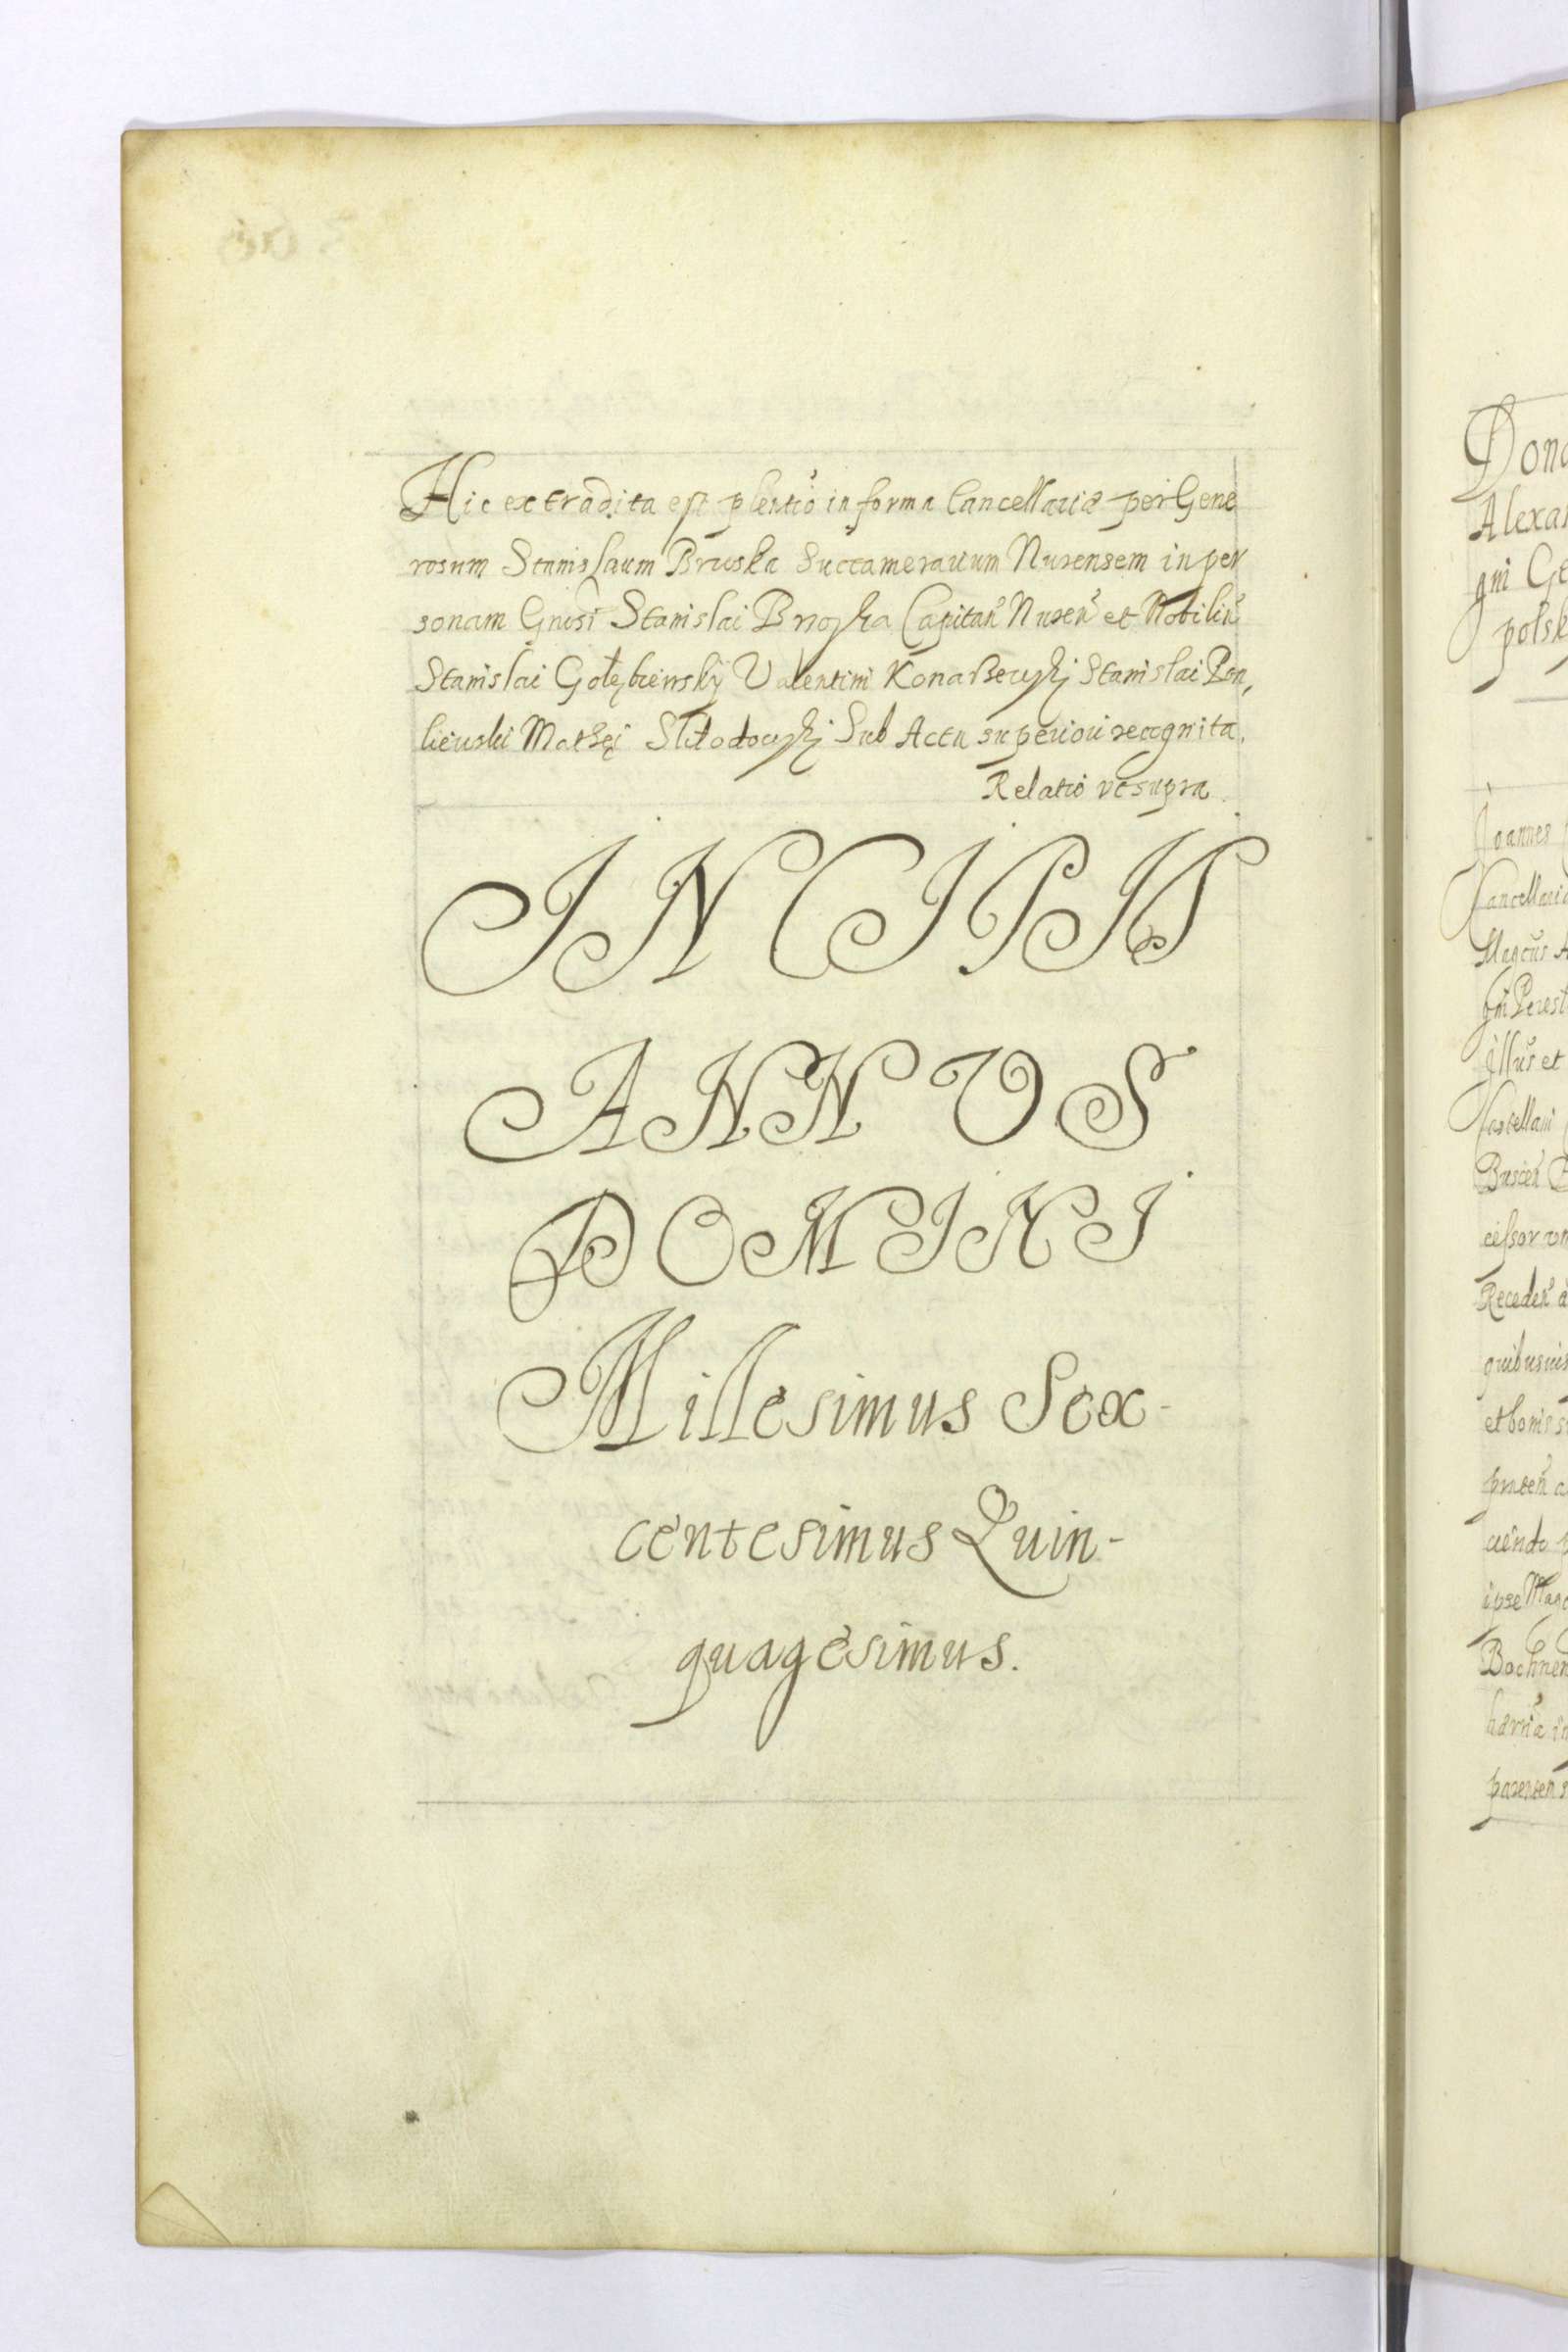 Hic extradita est plentio in forma Cancellariæ per Gene
rosum Stanislaum Brzoska Succamerarium Nurensem in per
sonam Gnosi Stanislai Brzoska Capitan Nuren et Nobiliu
Stanislai Gołębiewskÿ Valentini Konaszewskj Stanislai Pon
liewski Sub Actu superiori recognita.
Relatio vt supra
INCIPIT
ANNVS
DOMINI
Millesimus Sex-
centesimus Quin-
quagesimus.
Dona
Alexan
gni Ge
polsk
Joannes
Cancellaria
Magcus A
illus et
Castellani
Buscen
cessor
Receden a
quibusuis
et bonis s
ipse Magc
Bochnen
parenten s